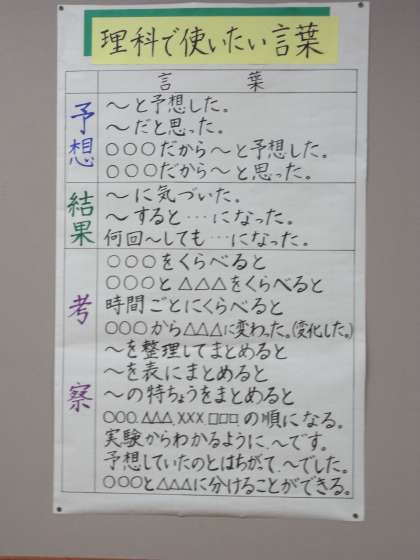 理科で使いたい言葉
言葉
予想
～と予想した。
～だと思った。
○○○だから～と予想した。
○○○だから～と思った。
結果
～に気づいた。
～すると…になった。
何回～しても…になった。
考察
○○○をくらべると
○○○と△△△をくらべると
時間ごとにくらべると
○○○から△△△に変わった。(変化した。)
～を整理してまとめると
～を表にまとめると
～の特ちょうをまとめると
○○○、△△△、×××、□□□の順になる。
実験からわかるように、～です。
予想していたのとはちがって、～でした。
○○○と△△△に分けることができる。